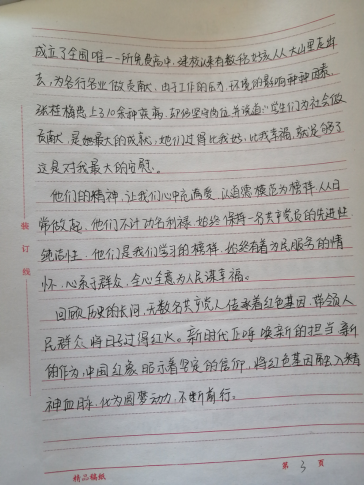 成立了全国唯一一所免费高中,建校以来有数千名女孩从大山里走出
去,为各行各业做贡献,由于工作的压力,环境的影响种种因素,
张桂梅患上了10余种疾病,却仍坚守岗位,并说道:学生们为社会做
贡献,是她最大的成就,她们过得比我好,比我幸福,就足够了
这是对我最大的安慰。
他们的精神,让我们心中充满爱,以道德模范为榜样,从日
常做起,他们不计功名利禄,始终保持一名共产党员的先进性
纯洁性,他们是我们学习的榜样,始终有着为民服务的情
怀,心系于群众,全心全意为人民谋幸福。
回顾历史的长河,无数名共产党人传承着红色基因,带领人
民群众将日子过得红火。新时代正呼唤新的担当,新
的作为,中国红象昭示着坚定的信仰,将红色基因融入精
神血脉,化为圆梦动力,不断前行。
装订线
精品稿纸
第 3 页